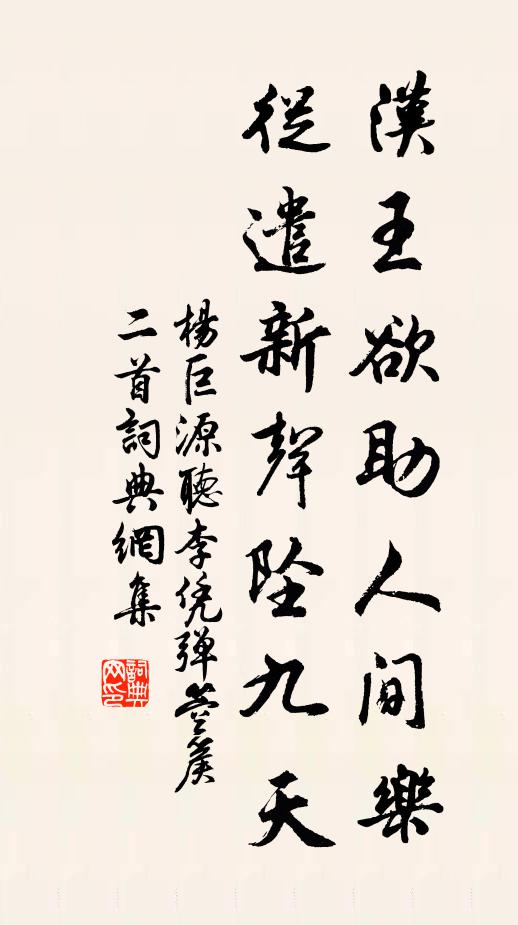 漢王欲助人間樂
從遣新聲墜九天
楊巨源聽李凭彈箜篌
二首詞典網集
詞典网印